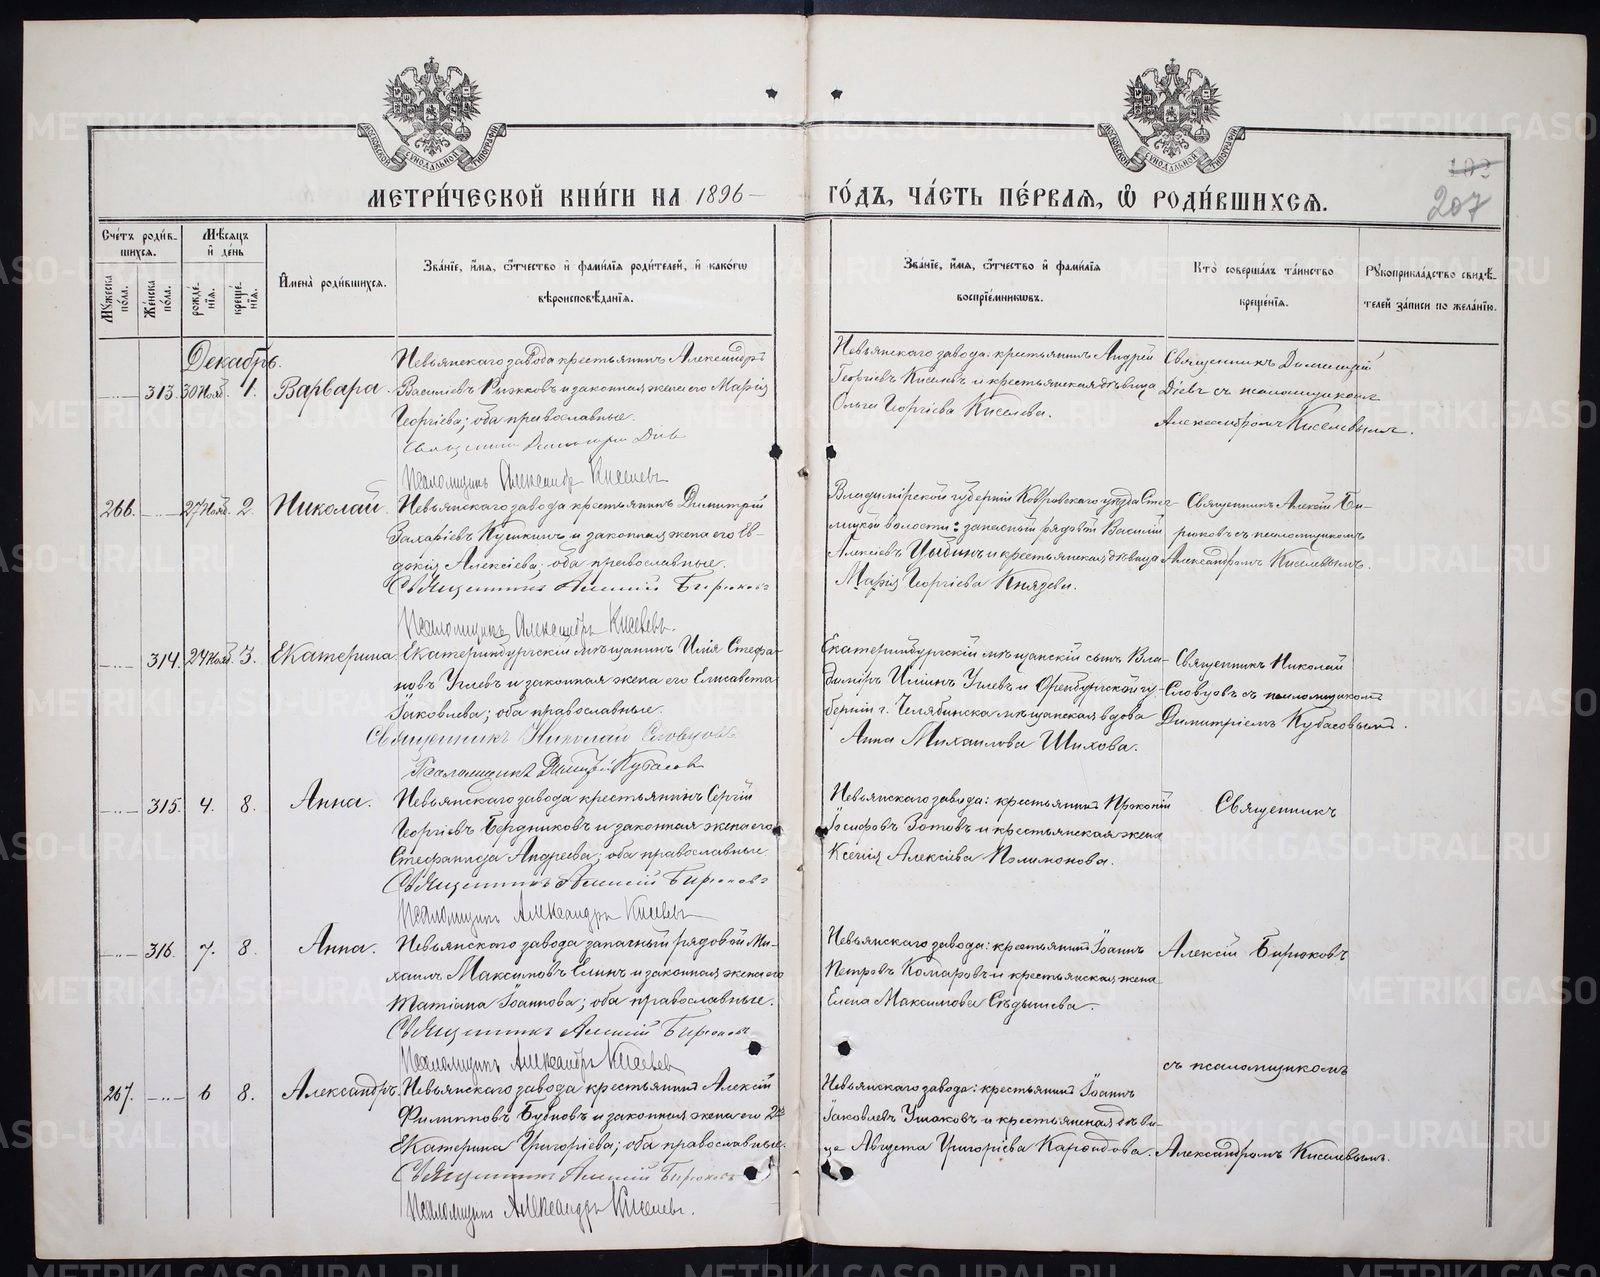 МОСКОВСКОЙ СѴНОДАЛЬНОЙ ТИПОГРАФІИ
МОСКОВСКОЙ СѴНОДАЛЬНОЙ ТИПОГРАФІИ
МЕТРИ́ЧЕСКОЙ КНИ́ГИ НА 1896 –
ГО́ДЪ, ЧА́СТЬ ПЕ́РВАѦ, Ѽ РОДИ́ВШИХСѦ.
207
Сче́тъ роди́в-
шихсѧ.
Мꙋ́жеска по́ла.
Же́нска по́ла.
Мѣ́сѧцъ и҆ де́нь
рожде́-нїѧ.
креще́-нїѧ.
И҆мена̀ роди́вшихсѧ.
Зва́нїе, и҆́мѧ, ѻ҆́тчество и҆ фамі́лїѧ роди́телей, и҆ како́гѡ
вѣроисповѣ́данїѧ.
Зва́нїе, и҆́мѧ, ѻ҆́тчество и҆ фамі́лїѧ
воспрїе́мникѡвъ.
Кто̀ соверша́лъ та́инство
креще́нїѧ.
Рꙋкоприкла́дство свидѣ́-
телей за́писи по жела́нїю.
Декабрь.
313. 30 Нояб. 1. Варвара.
Невьянскаго завода крестьянинъ Александръ
Васильевъ Рыжковъ и законная жена его Марія
Георгіева; оба православные.
Священникъ Димитрій Діевъ
Псаломщикъ Александръ Киселевъ
Невьянскаго завода: крестьянинъ Андрей
Георгіевъ Киселевъ и крестьянская дѣвица
Ольга Георгіева Киселева.
Священникъ Димитрій
Діевъ съ псаломщикомъ
Александромъ Киселевымъ.
266. 27 Нояб. 2. Николай.
Невьянскаго завода крестьянинъ Димитрій
Захаріевъ Пушкинъ и законная жена его Ев-
докія Алексіева; оба православные.
Священникъ Алексій Бирюковъ
Псаломщикъ Александръ Киселевъ.
Владимірской губерніи Ковровскаго уѣзда
волости: запасный рядовой Василій
Алексіевъ Цыбинъ и крестьянская дѣвица
Марія Георгіева Князева.
Священникъ Алексій Би-
рюковъ съ псаломщикомъ
Александромъ Киселевымъ.
314. 24 Нояб. 3. Екатерина.
Екатеринбургскій мѣщанинъ Илія Стефа-
новъ Углевъ и законная жена его Елисавета
Іаковлева; оба православные.
Священникъ Николай Словцовъ
Псаломщикъ Димитрій Кубасовъ
Екатеринбургскій мѣщанскій сынъ Вла-
диміръ Иліинъ Углевъ и Оренбургской гу-
берніи г. Челябинска мѣщанская вдова
Анна Михаилова Шихова.
Священникъ Николай
Словцовъ съ псаломщикомъ
Димитріемъ Кубасовымъ.
315. 4. 8. Анна.
Невьянскаго завода крестьянинъ Сергій
Георгіевъ Бердниковъ и законная жена его
Стефанида Андреева; оба православные.
Священникъ Алексій Бирюковъ
Псаломщикъ Александръ Киселевъ
Невьянскаго завода: крестьянинъ Прокопій
Іосифовъ Зотовъ и крестьянская жена
Ксенія Алексіева Полимонова.
Священникъ
316. 7. 8. Анна.
Невьянскаго завода запасный рядовой Ми-
хаилъ Максимовъ Елинъ и законная жена его
Татіана Іоаннова; оба православные.
Священникъ Алексій Бирюковъ
Псаломщикъ Александръ Киселевъ
Невьянскаго завода: крестьянинъ Іоаннъ
Петровъ Комаровъ и крестьянская жена
Елена Максимова Сѣдышева.
Алексій Бирюковъ
съ псаломщикомъ
267. 6 8. Александръ.
Невьянскаго завода крестьянинъ Алексій
Филипповъ Бубновъ и законная жена его
Екатерина Григоріева; оба православные.
Священникъ Алексій Бирюковъ
Псаломщикъ Александръ Киселевъ.
Невьянскаго завода: крестьянинъ Іоаннъ
Іаковлевъ Ушаковъ и крестьянская дѣви-
ца Августа Григоріева
Александромъ Киселевымъ.
METRIKI.GASO-URAL.RU